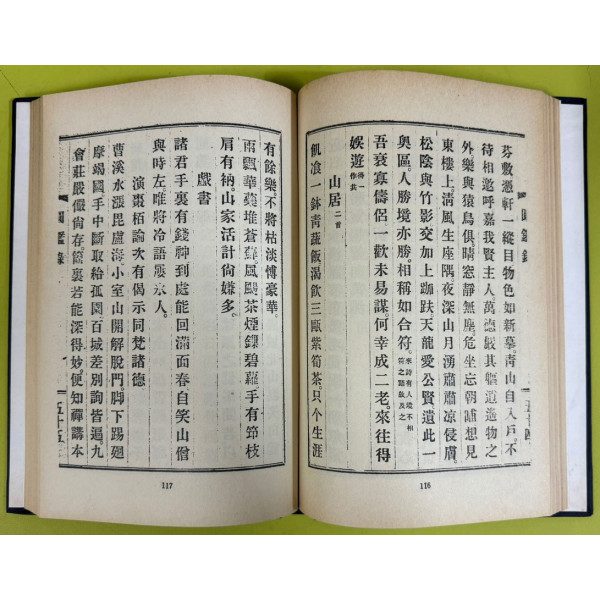 芬敷憑軒一縱目物色如新摹靑山自入戶不
待相邀呼嘉我賢主人萬德嚴其軀逍遙物之
外樂與猿鳥俱晴窓靜無塵危坐忘朝晡想見
東樓上淸風生座隅夜深山月湧肅肅凉侵膚
松陰與竹影交加上跏趺天龍愛公賢遺此一
奧區人勝境亦勝相稱如合符
吾衰寡儔侶一歡未易謀何幸成二老來往得
娛遊
山居二首
飢飡一鉢靑蔬飯渴飮三甌紫筍茶只个生涯
116
有餘樂不將枯淡博豪華
雨飄華蘂堆蒼蘚風颺茶煙鏁碧蘿手有笻枝
肩有衲山家活計尙嫌多
戲書
諸君手裏有錢神到處能回滿面春自笑山僧
與時左唯將冷語惡永人
演棗栢論次有偈示同梵諸德
曹溪水漲毘盧海小室山開解脫門脚下踢廻
摩竭國手中斷取給孤園百城差別詢皆遍九
會莊嚴儼尙存篋裏若能深得妙便知禪講本
圓鑑錄
五十五
117